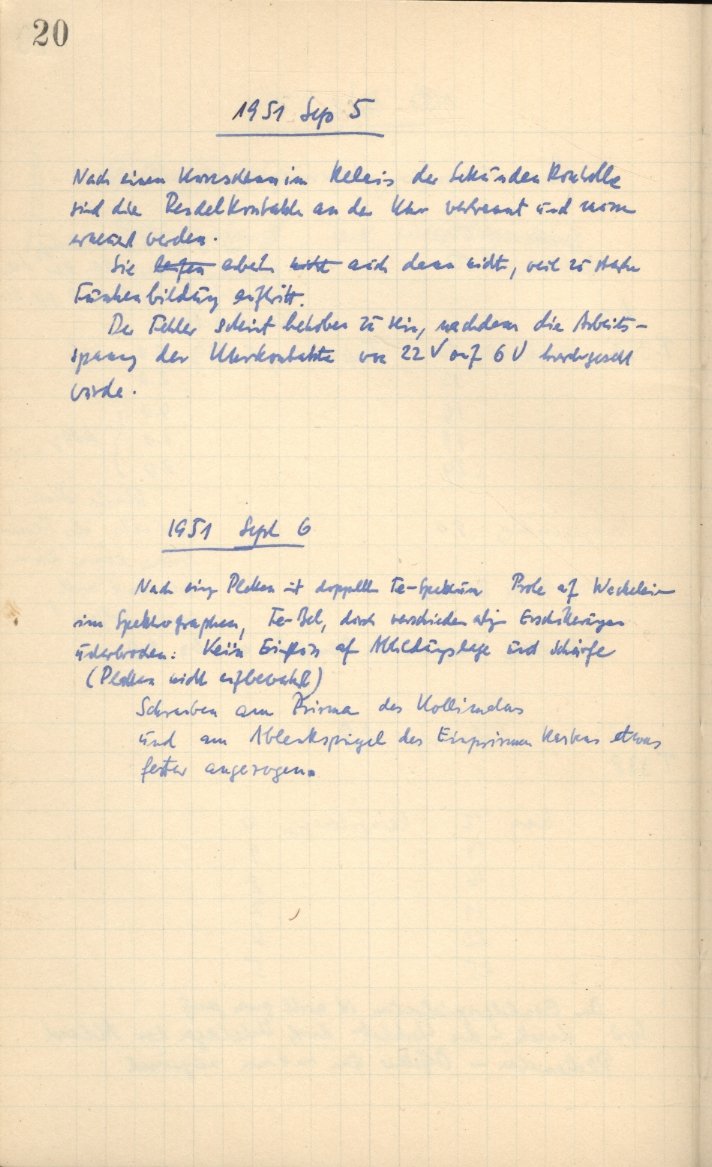 20
1951 Sep 5
Nach einem Kurzschluss im Relais der Sekunden Kontrolle
sind die Pendelkontakte an der Uhr verbrannt und müssen
erneuert werden.
Sie laufen arbeiten nicht auch dann nicht, weil zu starke
Funkenbildung auftritt.
Der Fehler scheint behoben zu sein, nachdem die Arbeits-
spannung der Uhrkontakte von 22 V auf 6 V herabgesetzt
wurde.
1951 Sept 6
Nach einer Platten mit doppelten Fe-Spektrum Probe auf
im Spektrographen, Fe-Bel, durch verschiedenartige Erschütterungen
unterbrochen: Kein Einfluss auf Abbildungslage und Schärfe
(Platten nicht aufbewahrt)
Schrauben am Prisma des Kollimators
und am Ablenkspiegel des Einprismen Kastens etwas
fester angezogen.